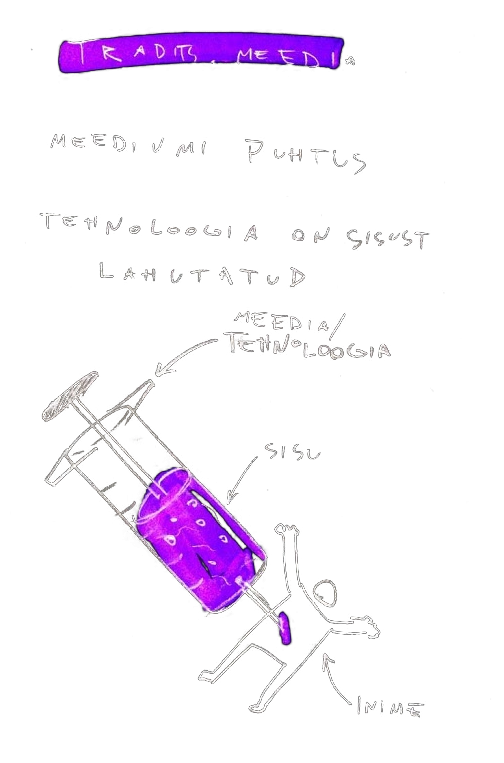 TRADITS. MEEDIA
MEEDIUMI PUHTUS
TEHNOLOOGIA ON SISUST
LAHUTATUD
MEEDIA/
TEHNOLOOGIA
SISU
INIME